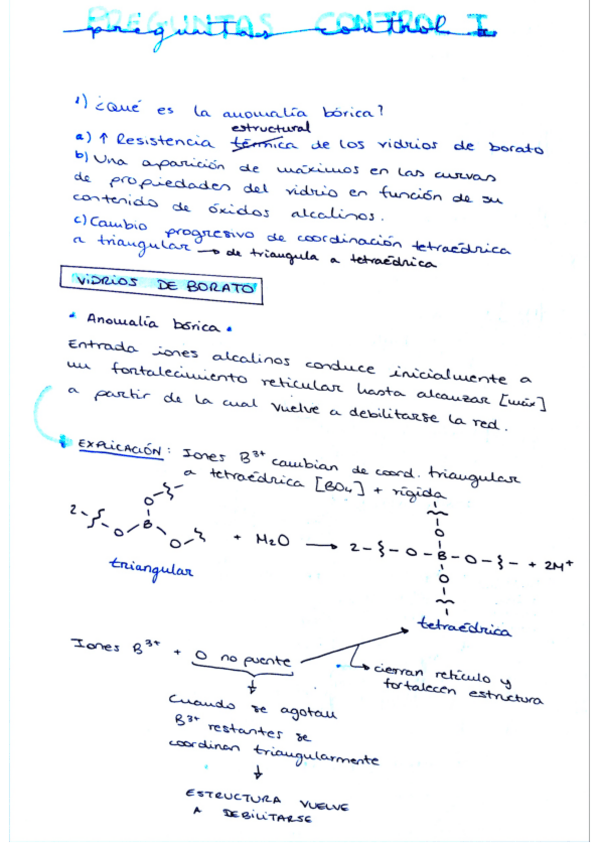 PREGUNTAS CONTROL I
1) ¿Qué es la anomalía bórica?
estructural
a) ↑ Resistencia térmica de los vidrios de borato
b) Una aparición de máximos en las curvas
de propiedades del vidrio en función de su
contenido de óxidos alcalinos.
c) Cambio progresivo de coordinación tetraédrica
a triangular → de triangula a tetraédrica
VIDRIOS DE BORATO
• Anomalía bórica •
Entrada iones alcalinos conduce inicialmente a
un fortalecimiento reticular hasta alcanzar [máx]
a partir de la cual vuelve a debilitarse la red.
EXPLICACIÓN: Iones B³⁺ cambian de coord. triangular
a tetraédrica [BO₄] + rígida
2-}-O-B-O-}- O-}- + M₂O → 2-}-O-B-O-}- + 2M⁺
triangular
tetraédrica
Iones B³⁺ + O no puente
cierran retículo y
fortalecen estructura
Cuando se agotan
B³⁺ restantes se
coordinan triangularmente
ESTRUCTURA VUELVE
A DEBILITARSE